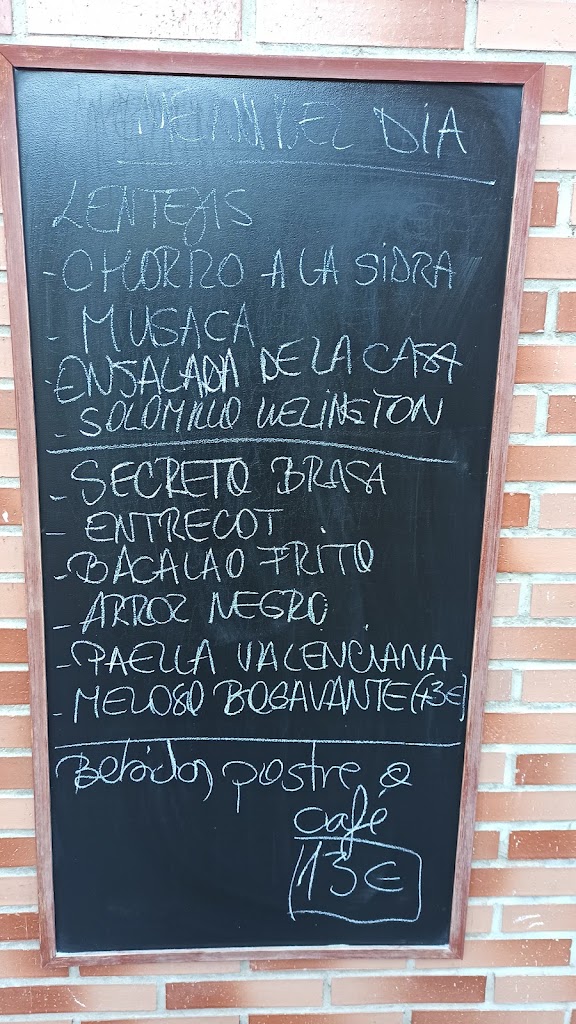 MENU DEL DÍA
LENTEJAS
- CHORIZO A LA SIDRA
- MUSACA
- ENSALADA DE LA CASA
- SOLOMILLO WELINGTON
- SECRETO BRASA
- ENTRECOT
- BACALAO FRITO
- ARROZ NEGRO
- PAELLA VALENCIANA
- MELOSO BOGAVANTE (+3€)
Bebidas, postre o
café
13€